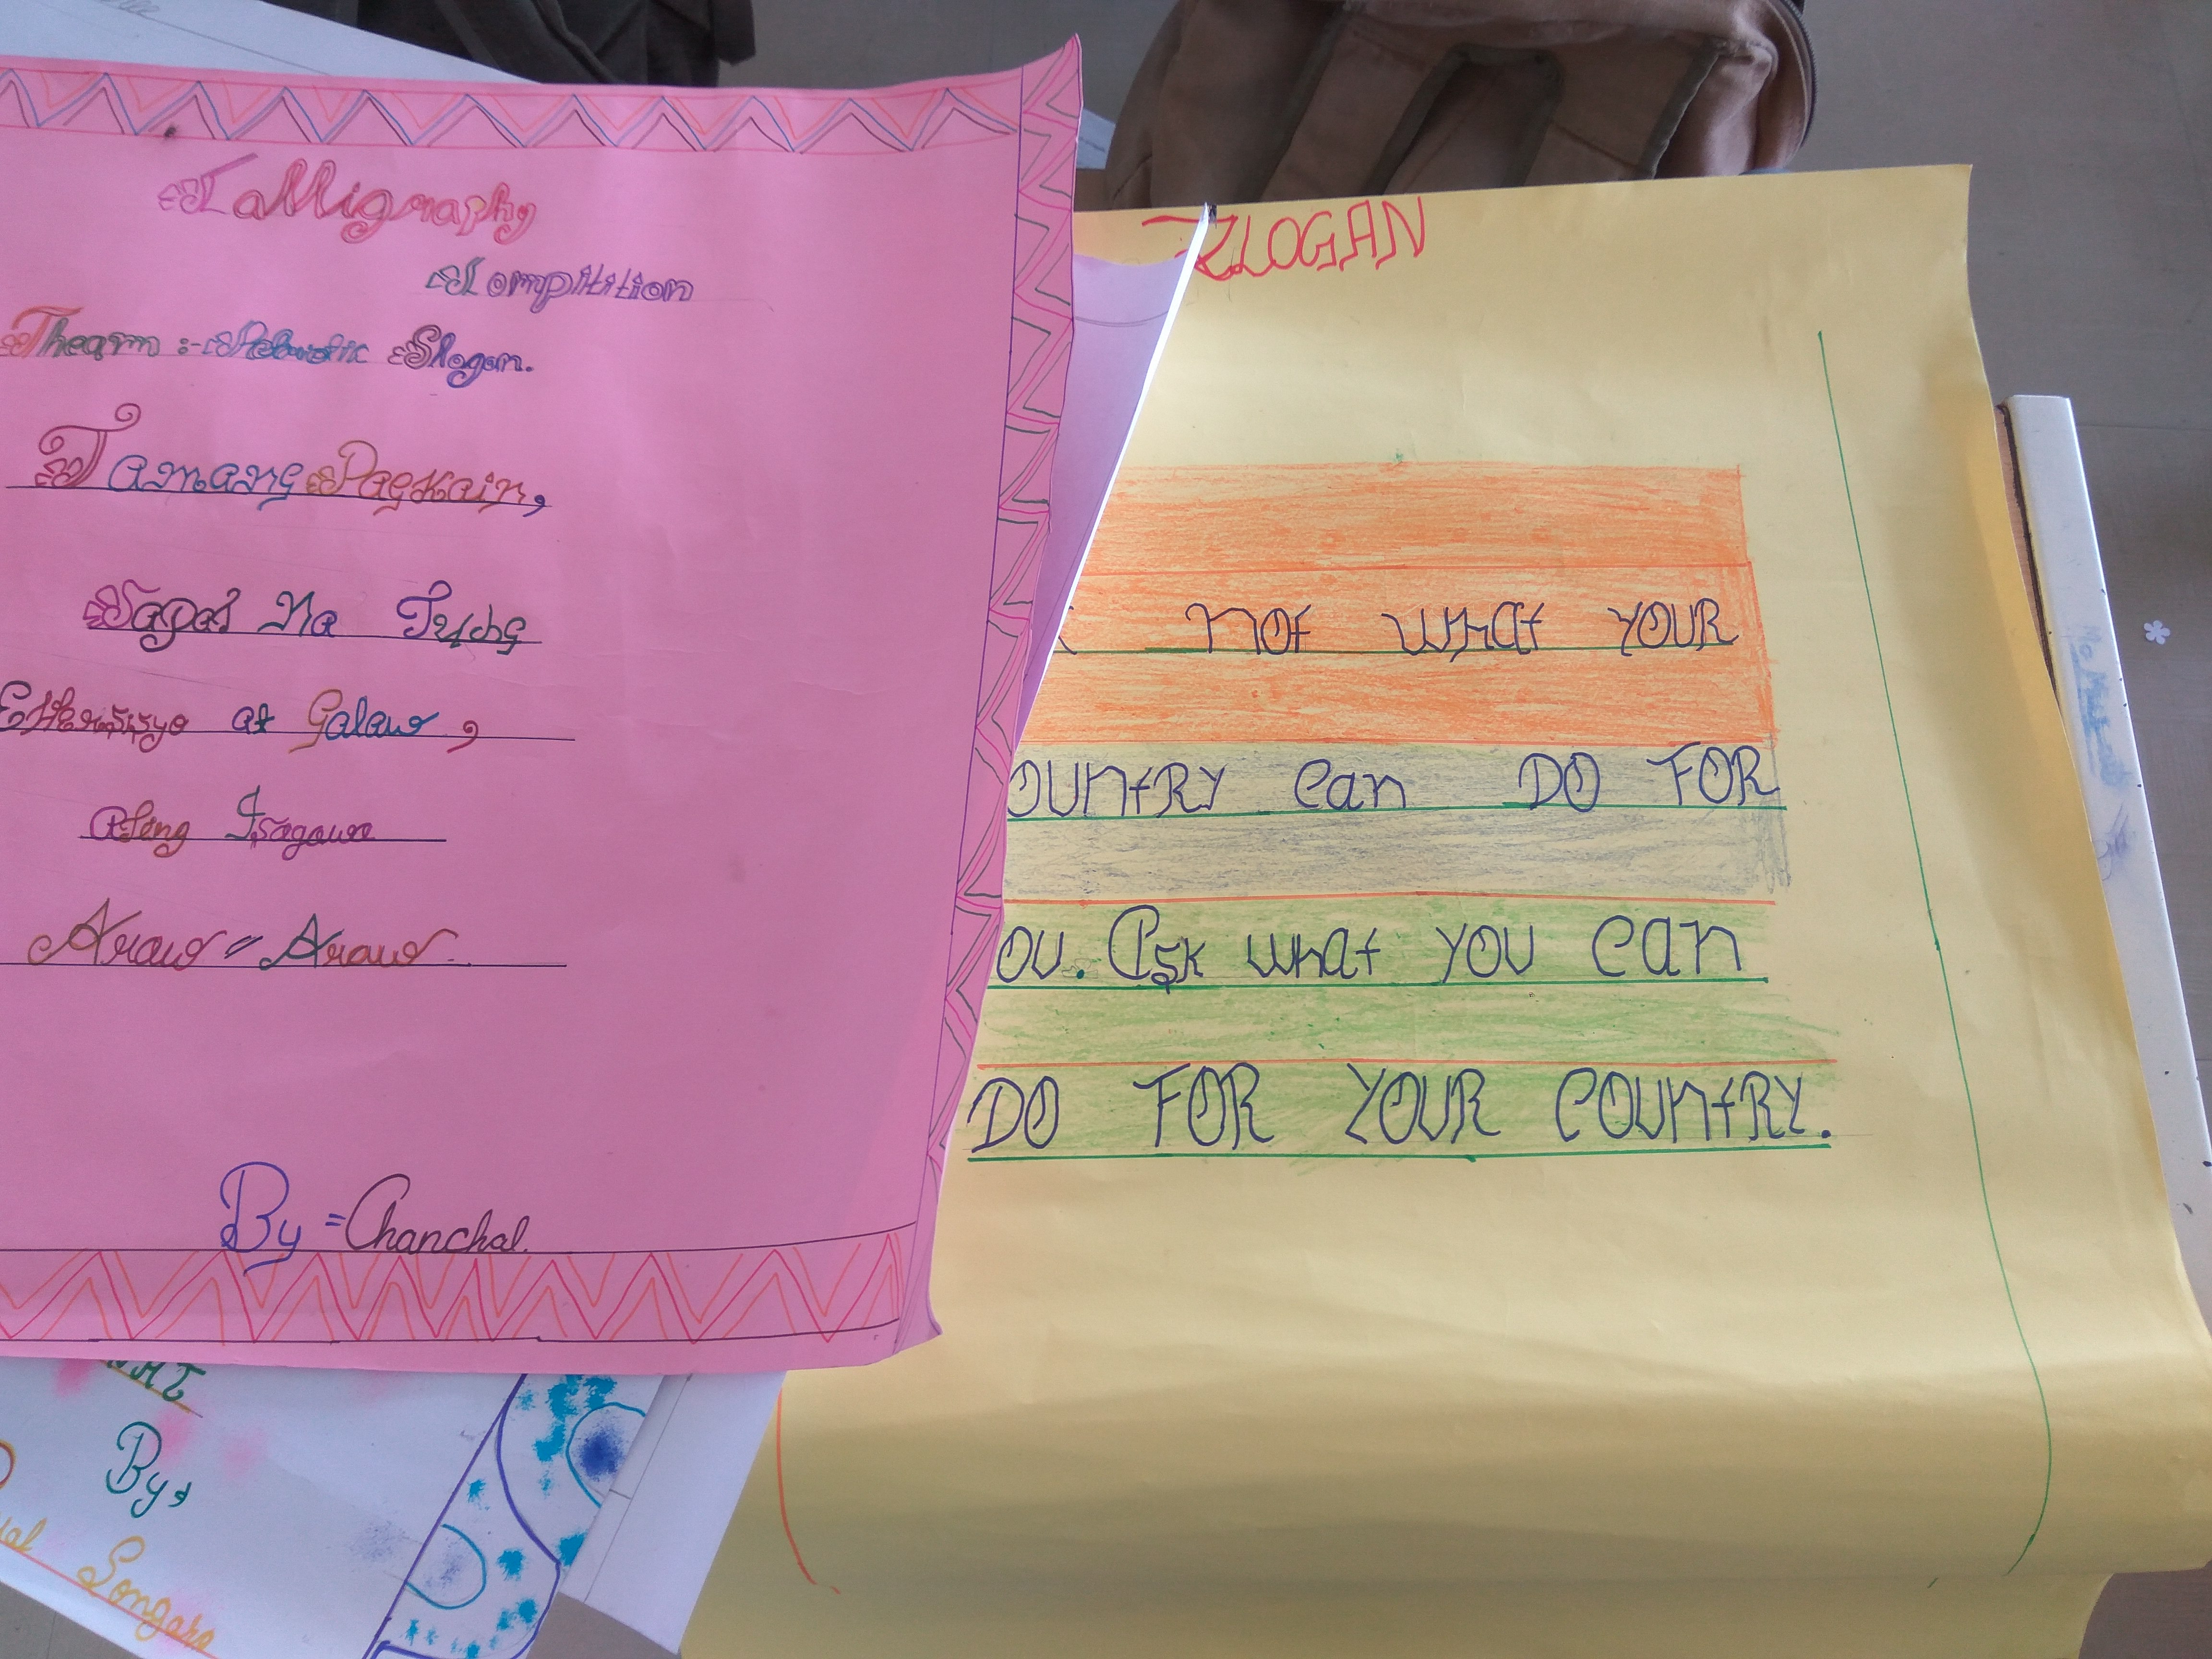 Calligraphy
Compitition
Theam :- Patriotic Slogan.
Tamang Pagkain,
Sapat Na Tulog
Ehersisyo at Galaw,
Ating Isagawa
Araw " Araw.
By = Chanchal
SLOGAN
not what YOUR
OUntRY can DO FOR
OU. Ask what YOU can
DO FOR YOUR COUntRY.
By,
Songara